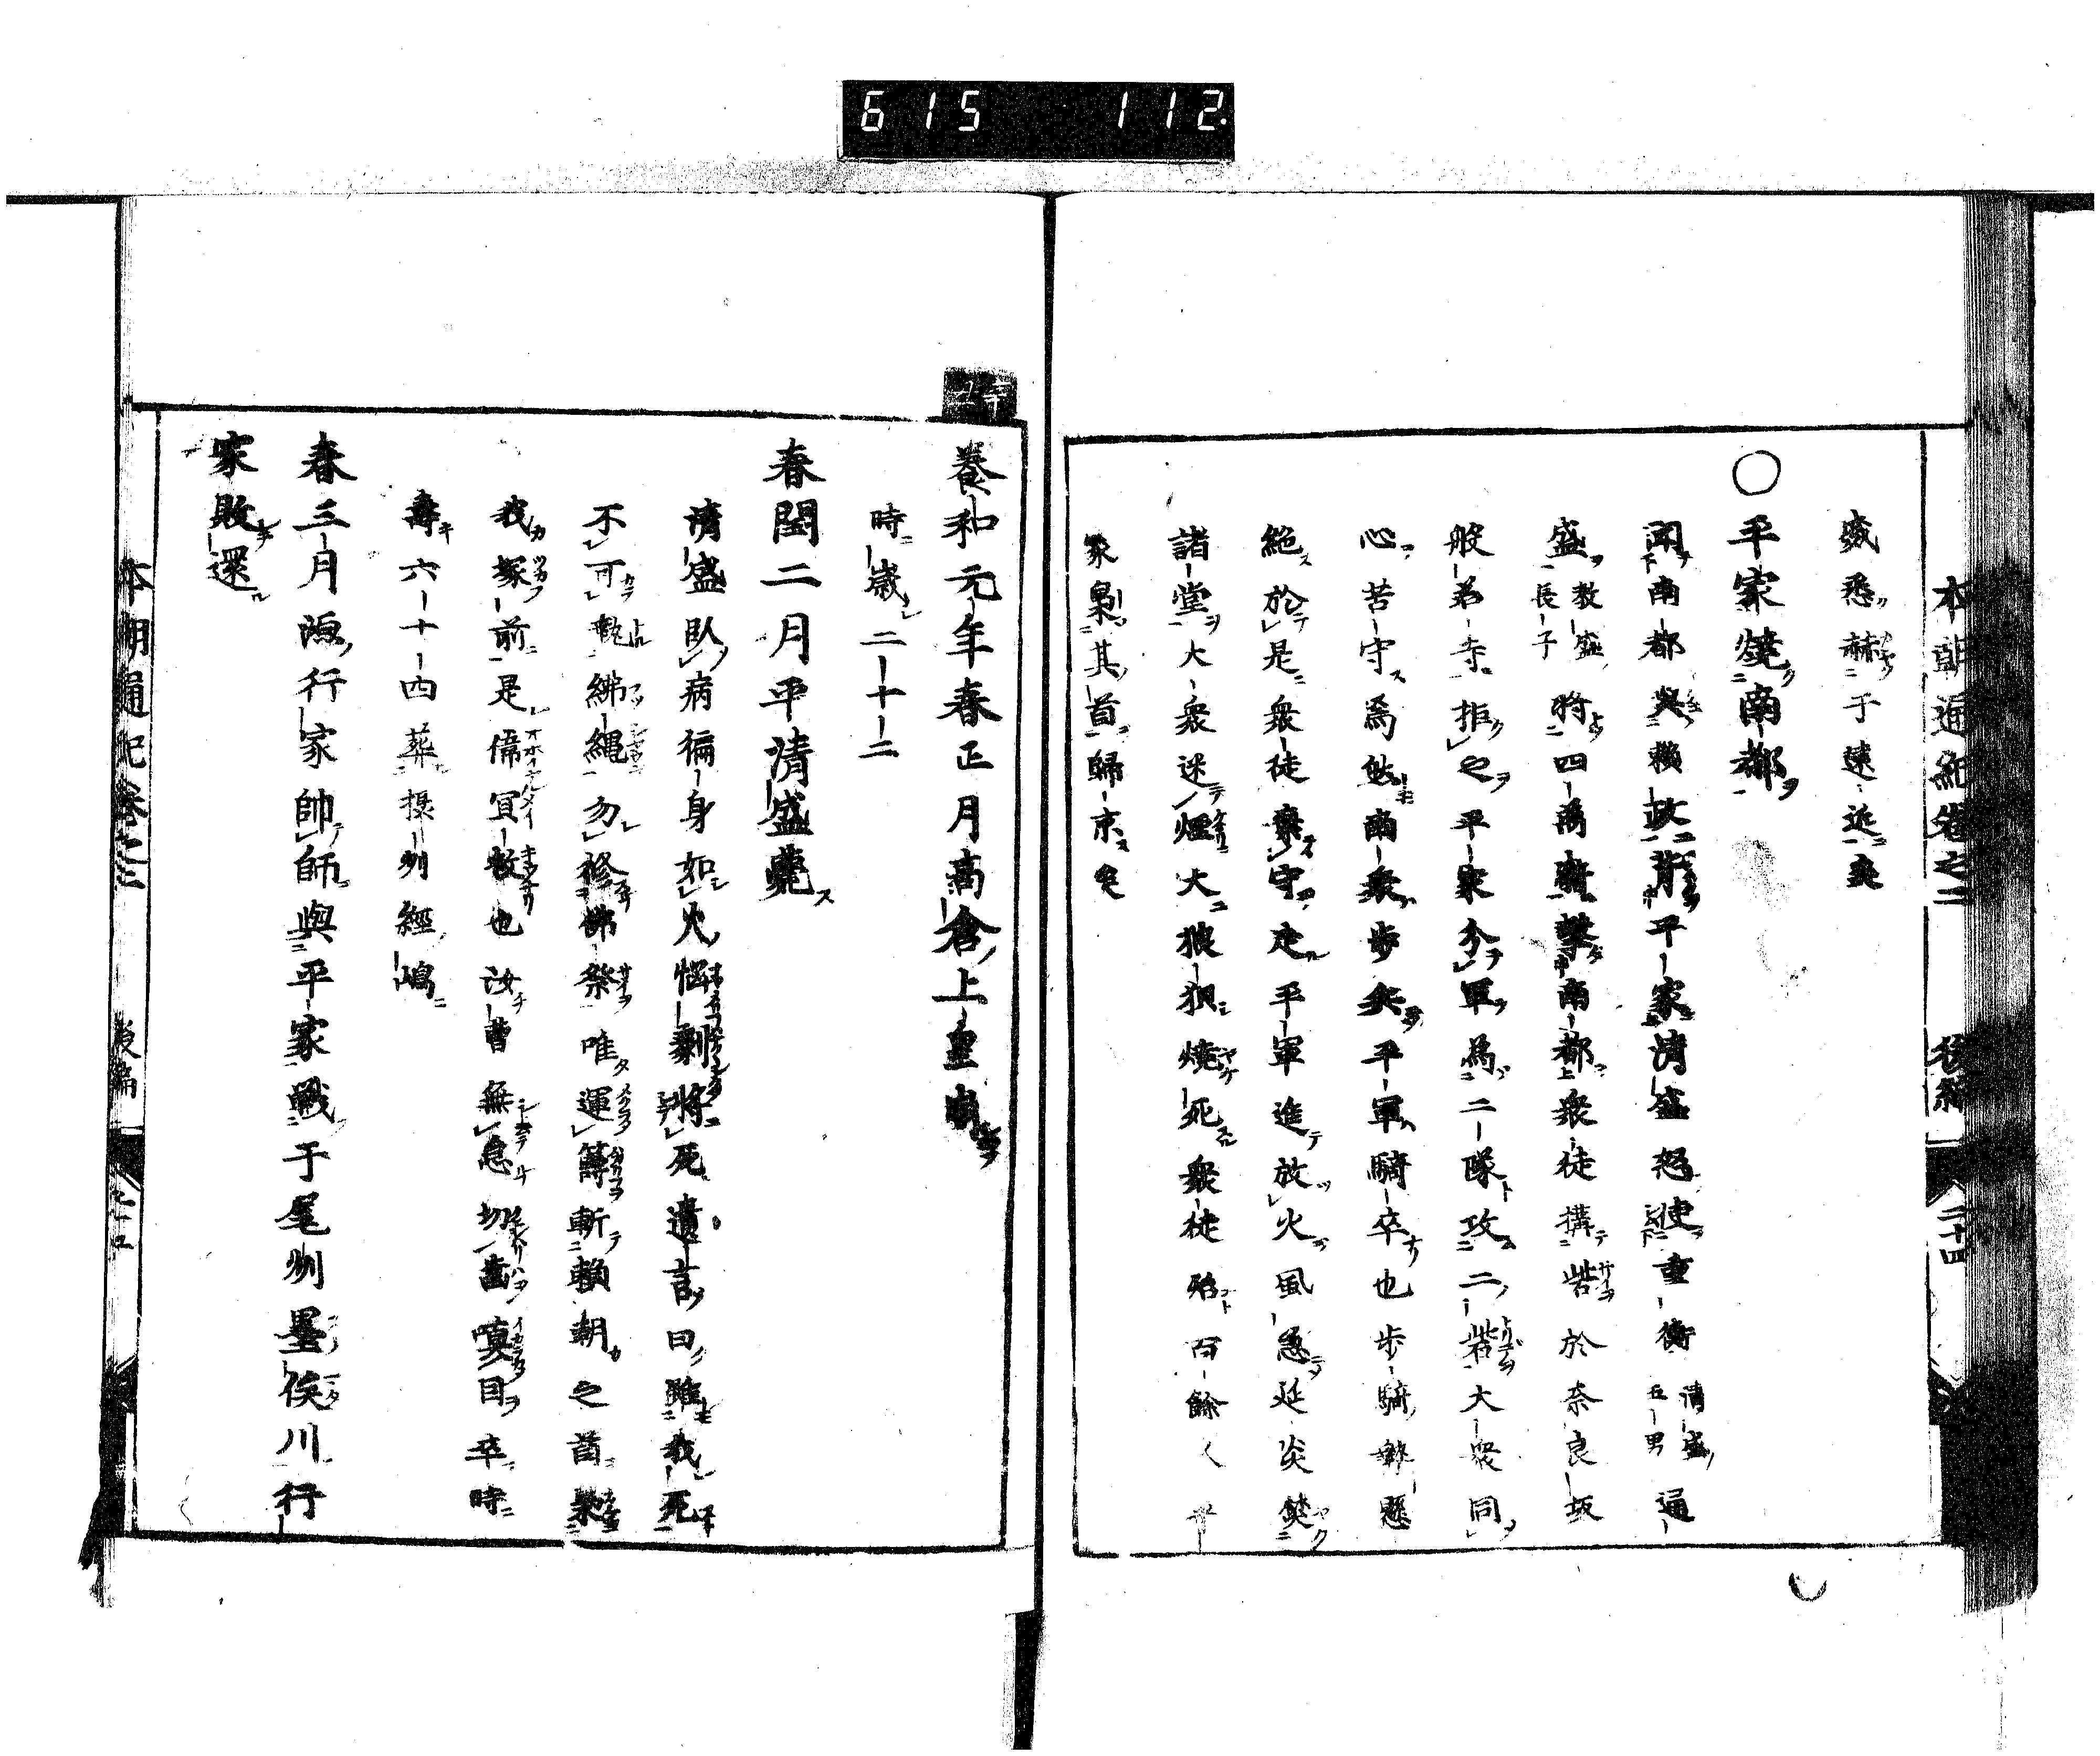 615 112
本朝通紀卷之二 後編 二十四
威悉赫于遠近矣
○平家燒南都
聞南都與賴政背平家清盛怒使重衡清盛五男通
盛教盛長子將四萬騎擊南都衆徒搆砦於奈良坂
般若寺拒之平家分軍為二隊攻二砦大衆同
心苦守焉然南衆步兵平軍騎卒也步騎懸
絶於是衆徒棄守走平軍進放火風急延炎燓
諸堂大衆迷煙大狼狽燒死衆徒殆百餘人平
家梟其首歸京矣
養和元年春正月高倉上皇崩
時歲二十二
春閏二月平清盛薨
清盛臥病徧身如火惱剰將死遺言曰雖我死
不可執紼繩勿修佛祭唯運籌斬賴朝之首梟
我塚前是偆冝教也汝曹無怠切齒嗔目卒時
壽六十四葬摂州經嶋
春三月源行家帥師與平家戰于尾州墨俣川行
家敗還
本朝通紀卷之二 後編